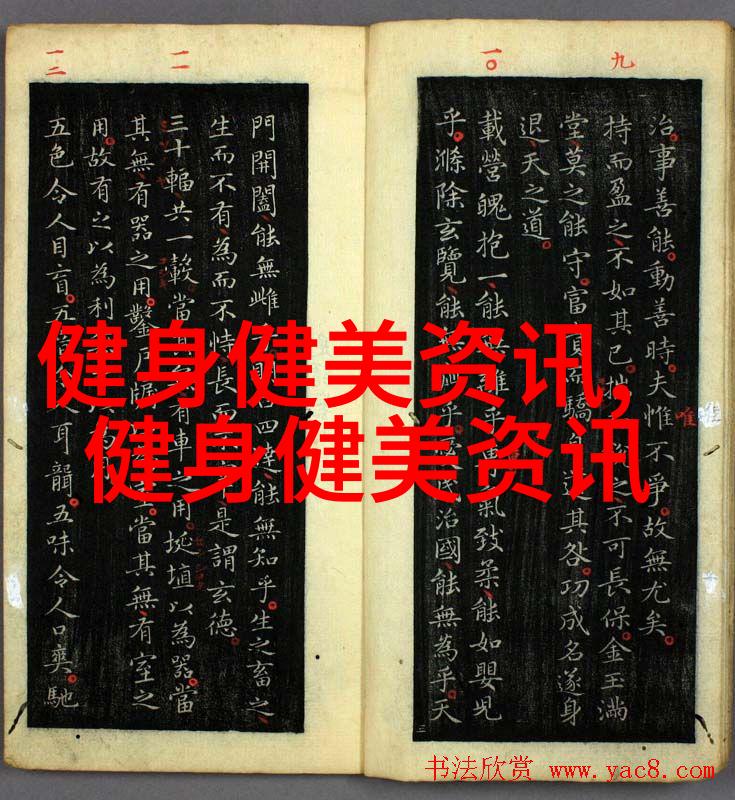 九
治事善能動善時夫惟不爭故無尤矣
唯
持而盈之不如其已之不可長保金玉滿
堂莫之能守富而驕其咎功成名遂身
退天之道
一〇
載營魄抱一能離乎氣致柔能如嬰児
乎滌除玄覽能無乎治國能無為乎天
一一
門開闔能無雌四達能無知乎生之畜之
生而不有為而不恃長而是謂玄德
三十輻共一轂當有車之用埏埴以為器當
其無有器之用鑿戶牖當其無有室之
用故有之以為利
一二
五色令人目盲五音人耳聾五味令人口爽馳
健身健美资讯,
健身健美资讯
书法欣赏 www.yac8.com